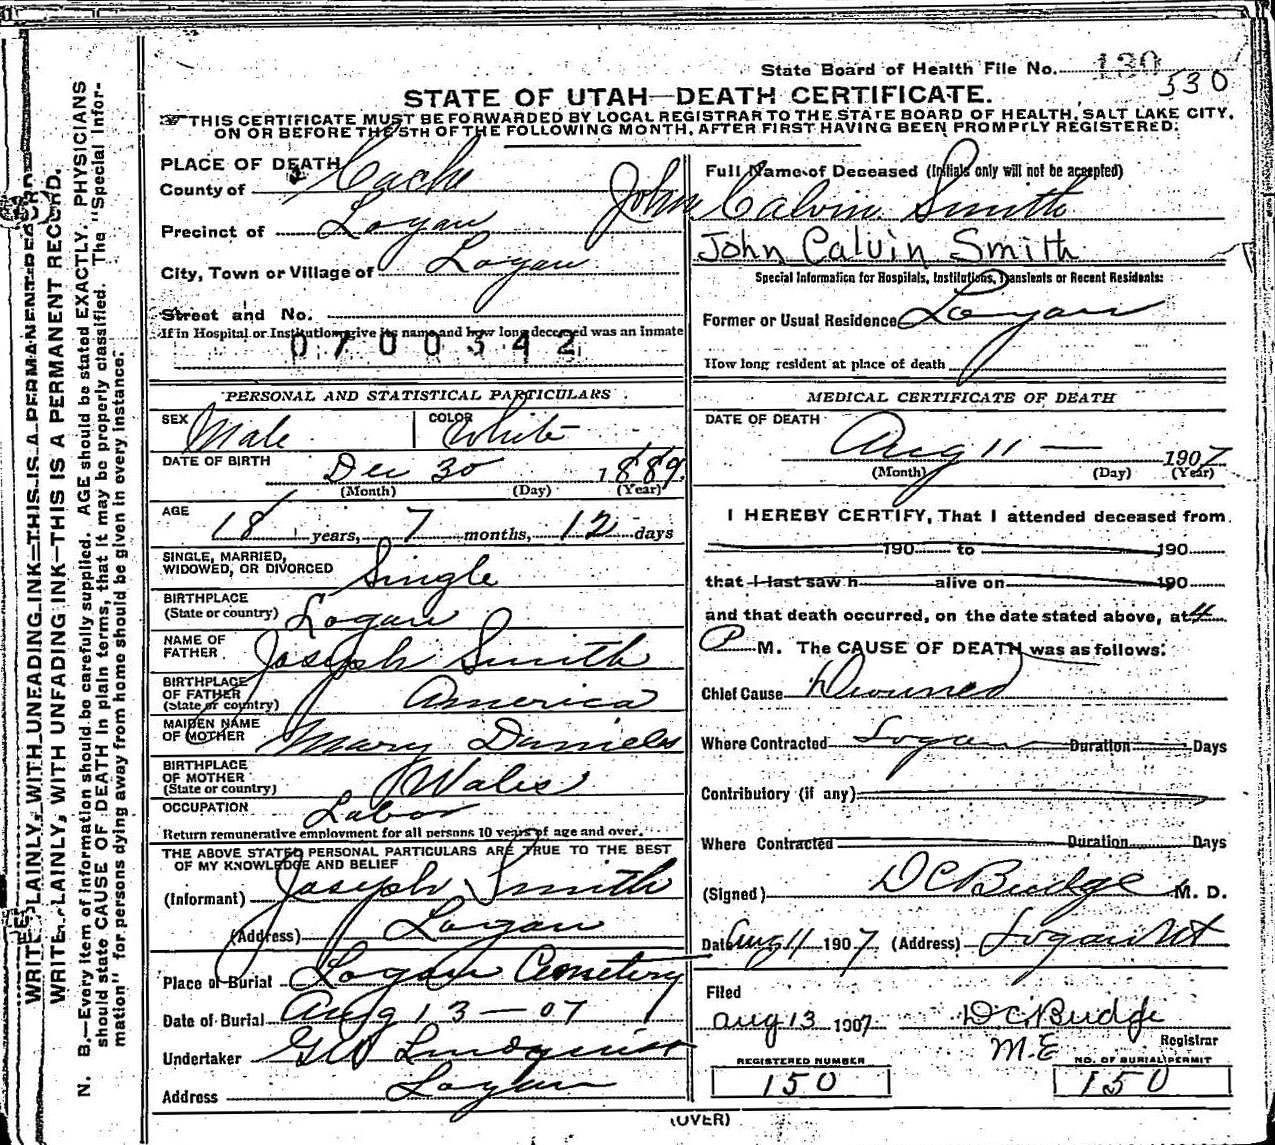 State Board of Health File No. 130
530
STATE OF UTAH—DEATH CERTIFICATE.
THIS CERTIFICATE MUST BE FORWARDED BY LOCAL REGISTRAR TO THE STATE BOARD OF HEALTH, SALT LAKE CITY,
ON OR BEFORE THE 5TH OF THE FOLLOWING MONTH, AFTER FIRST HAVING BEEN PROMPTLY REGISTERED.
PLACE OF DEATH
County of Cache
Precinct of Logan
City, Town or Village of Logan
Street and No.
If in Hospital or Institution give its name and how long deceased was an inmate
0700342
PERSONAL AND STATISTICAL PARTICULARS
SEX Male COLOR White
DATE OF BIRTH Dec 30 1889
(Month) (Day) (Year)
AGE 18 years, 7 months, 12 days
SINGLE, MARRIED,
WIDOWED, OR DIVORCED Single
BIRTHPLACE
(State or country) Logan
NAME OF
FATHER Joseph Smith
BIRTHPLACE
OF FATHER
(State or country) America
MAIDEN NAME
OF MOTHER Mary Daniels
BIRTHPLACE
OF MOTHER
(State or country) Wales
OCCUPATION Labor
Return remunerative employment for all persons 10 years of age and over.
THE ABOVE STATED PERSONAL PARTICULARS ARE TRUE TO THE BEST
OF MY KNOWLEDGE AND BELIEF
(Informant) Joseph Smith
(Address) Logan
Place of Burial Logan Cemetery
Date of Burial Aug 13 — 07
Undertaker Lindquist
Address Logan
Full Name of Deceased (Initials only will not be accepted)
John Calvin Smith
John Calvin Smith
Special Information for Hospitals, Institutions, Transients or Recent Residents:
Former or Usual Residence Logan
How long resident at place of death
MEDICAL CERTIFICATE OF DEATH
DATE OF DEATH
Aug 11 — 1907
(Month) (Day) (Year)
I HEREBY CERTIFY, That I attended deceased from
190 to 190
that I last saw h alive on 190
and that death occurred, on the date stated above, at 4
P M. The CAUSE OF DEATH was as follows:
Chief Cause Drowned
Where Contracted Logan Duration Days
Contributory (if any)
Where Contracted Duration Days
(Signed) D C Budge M. D.
Date Aug 11 1907 (Address) Logan Ut
Filed
Aug 13 1907 D C Budge
Registrar
M.E
REGISTERED NUMBER NO. OF BURIAL PERMIT
150 150
(OVER)
WRITE PLAINLY, WITH UNFADING INK—THIS IS A PERMANENT RECORD.
WRITE PLAINLY, WITH UNFADING INK—THIS IS A PERMANENT RECORD.
N. B.—Every item of information should be carefully supplied. AGE should be stated EXACTLY. PHYSICIANS
should state CAUSE OF DEATH in plain terms, that it may be properly classified. The "Special Infor-
mation" for persons dying away from home should be given in every instance.